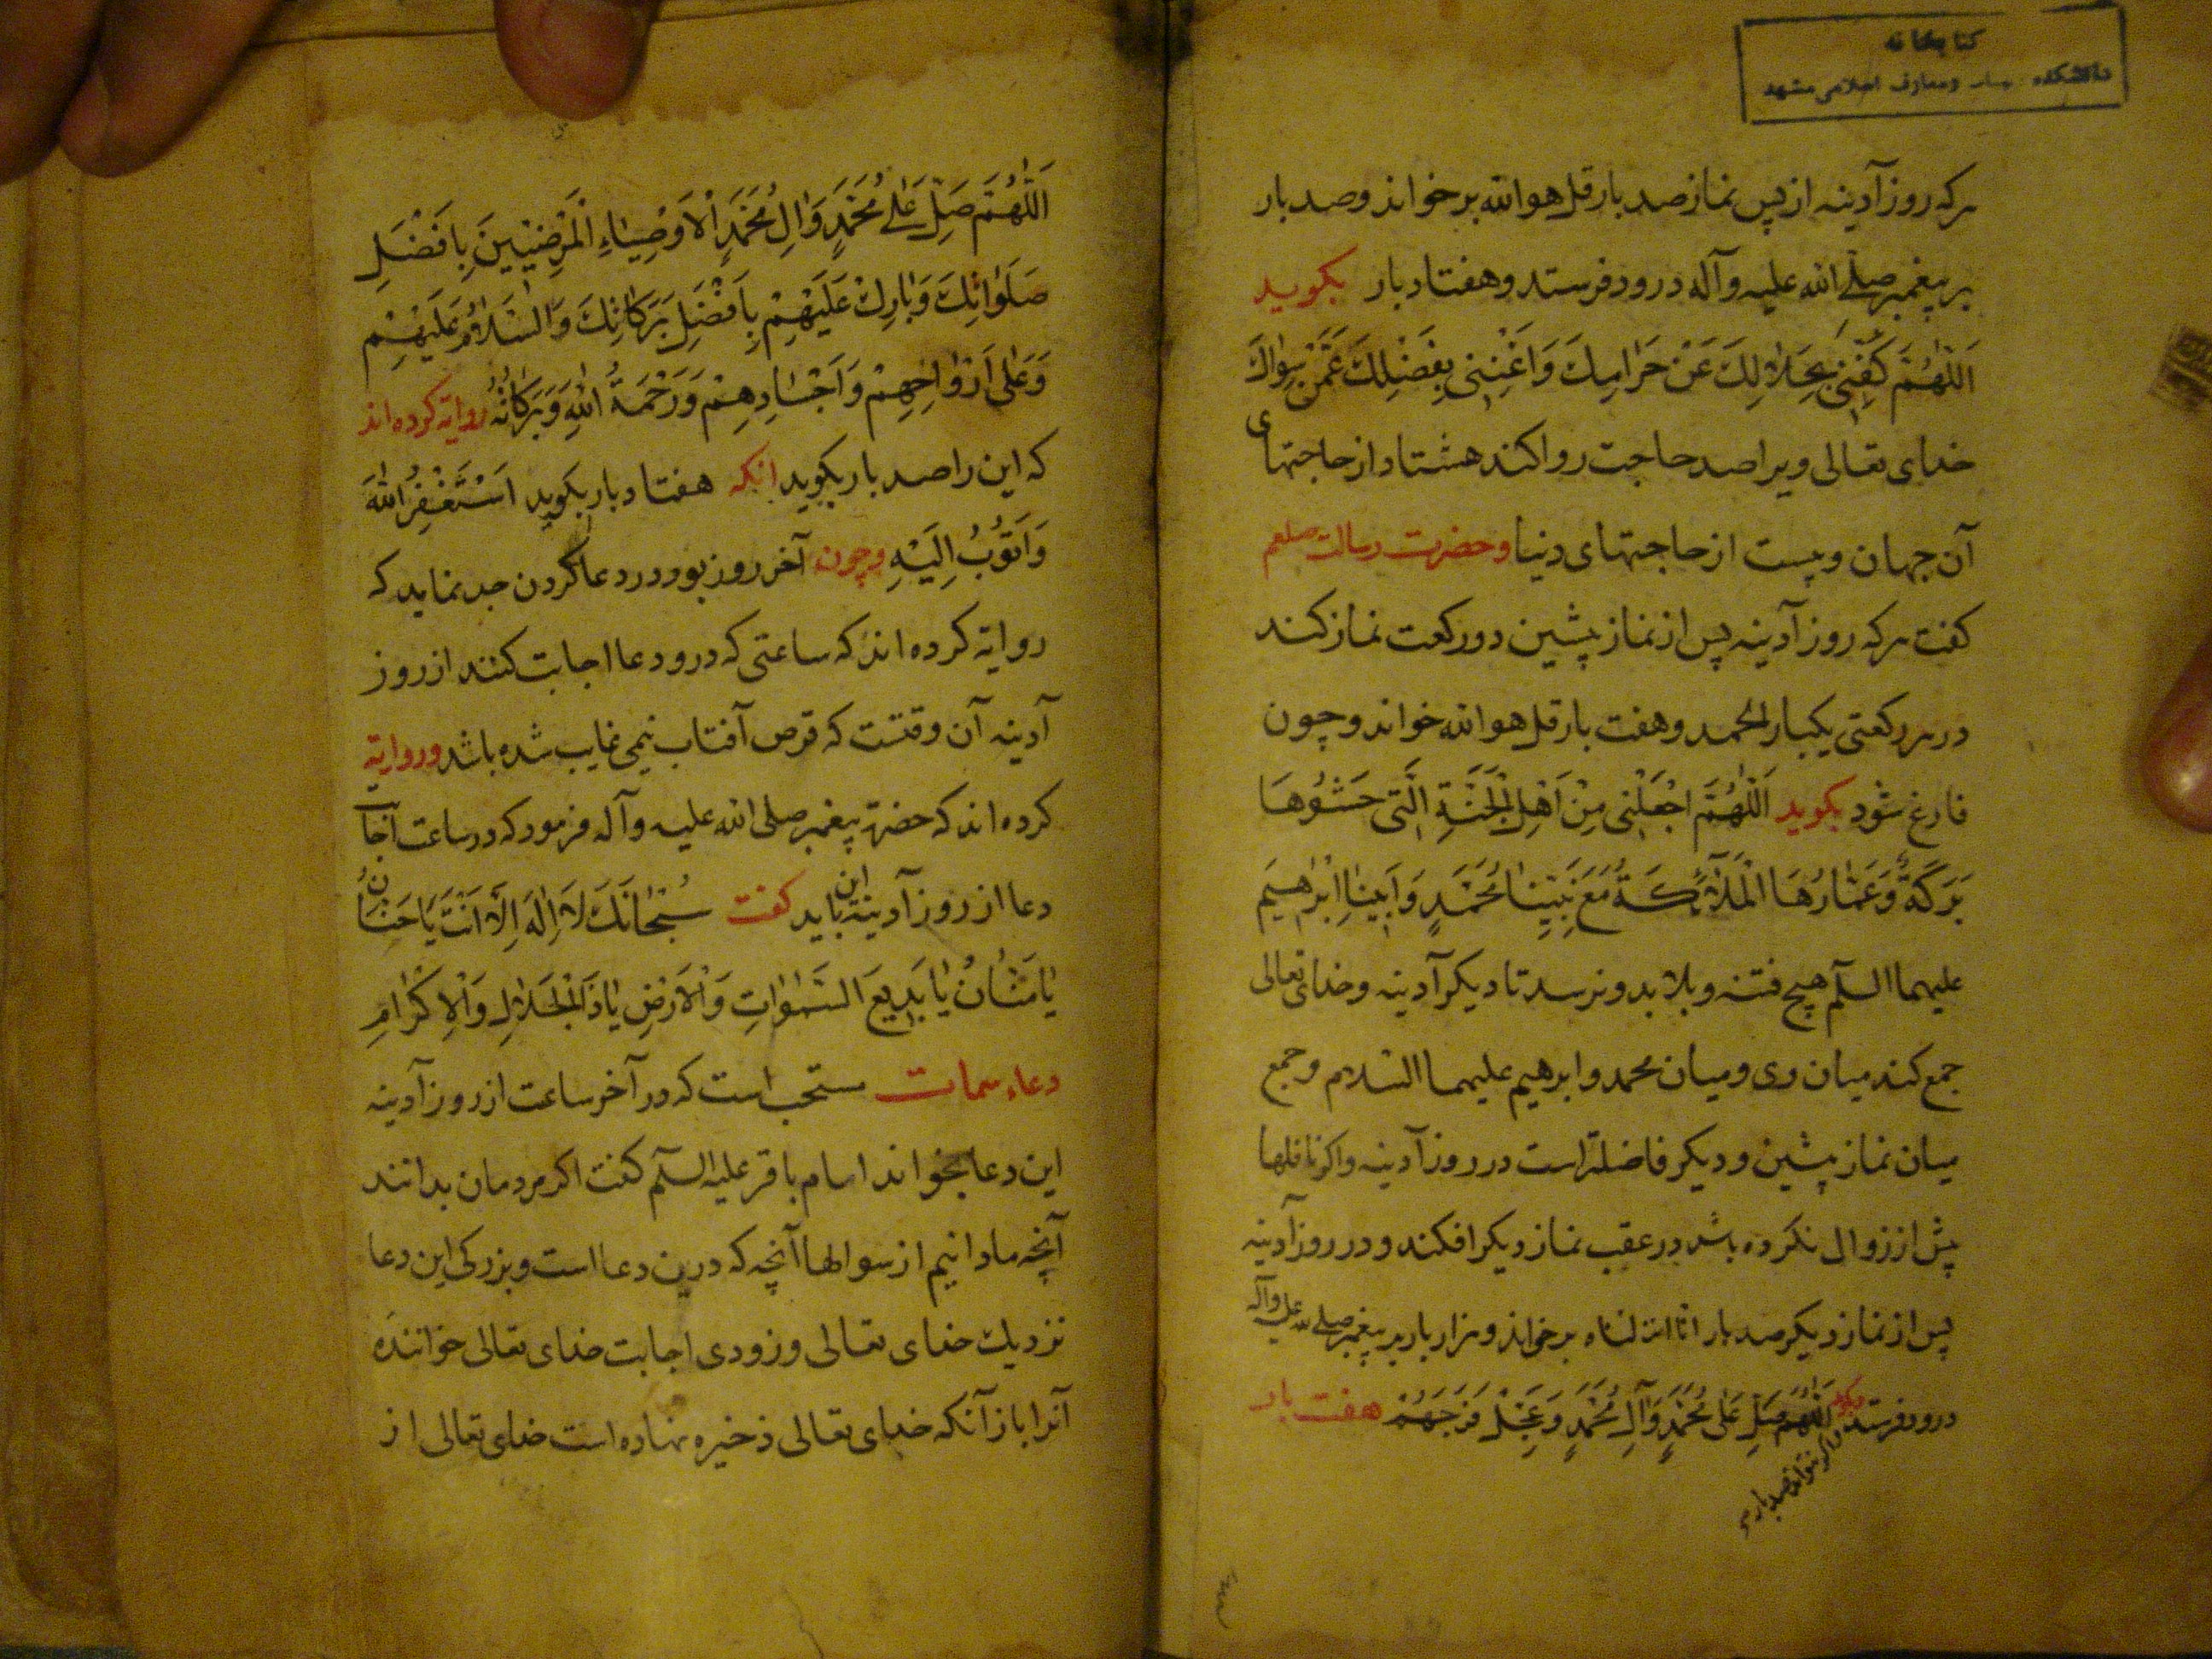 كتابخانه
دانشكده ومعارف اسلامی مشهد
هرکه روز آدینه از پس نماز صد بار قل هو الله برخواند وصد بار
بر پیغمبر صلی الله علیه وآله درود فرستد وهفتاد بار بکوید
اَللّهُمَّ بِحَلالِكَ عَنْ حَرامِكَ وَاَغْنِنی بِفَضْلِكَ عَمَّنْ سِواكَ
خدای تعالی ویرا صد حاجت روا کند هشتاد از حاجتهای
آن جهان وبیست از حاجتهای دنیا وحضرت رسالت صلعم
کفت هرکه روز آدینه پس از نماز پیشین دو رکعت نماز کند
در هر رکعتی یکبار الحمد وهفت بار قل هو الله خواند وچون
فارغ شود بکوید اَللّهُمَّ اجْعَلْنی مِنْ اَهْلِ الْجَنَّةِ الَّتی حَشْوُهَا
بَرَكَةٌ وَعَمّارُهَا الْمَلآئِكَةُ مَعَ نَبِیِّنا مُحَمَّدٍ وَاَبینا اِبْرهیمَ
علیهما السلم هیچ فتنه وبلا بدو نرسد تا دیکر آدینه وخدای تعالی
جمع کند میان وی ومیان محمد وابرهیم علیهما السلام وجمع
میان نماز پیشین ودیکر فاضلتر است در روز آدینه واکر نافلها
پش از زوال نکرده باشد در عقب نماز دیکر افکند ودر روز آدینه
پس از نماز دیکر صد بار انا انزلناه برخواند وهزار بار بر پیغمبر صلی الله علیه وآله
درود فرستد بکوید اللّهُمَّ صَلِّ عَلی مُحَمَّدٍ وَآلِ مُحَمَّدٍ وَعَجِّلْ فَرَجَهُمْ هفت بار
واکر بتواند صد بار
اَللّهُمَّ صَلِّ عَلی مُحَمَّدٍ وَالِ مُحَمَّدٍ اَلْاَوْصِیاءِ الْمَرْضِیّینَ بِاَفْضَلِ
صَلَواتِكَ وَبارِكْ عَلَیْهِمْ بِاَفْضَلِ بَرَكاتِكَ وَالسَّلامُ عَلَیْهِمْ
وَعَلی اَرْواحِهِمْ وَاَجْسادِهِمْ وَرَحْمَةُ اللهِ وَبَرَكاتُهُ روایة کرده اند
که این را صد بار بکوید انکه هفتاد بار بکوید اَسْتَغْفِرُ اللهَ
وَاَتُوبُ اِلَیْهِ وچون آخر روز بود در دعا کردن جد نماید که
روایة کرده اند که ساعتی که درو دعا اجابت کنند از روز
آدینه آن وقتست که قرص آفتاب نیمی غایب شده باشد وروایة
کرده اند که حضرة پیغمبر صلی الله علیه وآله فرمود که در ساعت اجابت
دعا از روز آدینه این باید کفت سُبْحانَكَ لا اِلهَ اِلّا اَنْتَ یَا حَنّانُ
یا مَنّانُ یا بَدیعَ السَّمواتِ وَالْاَرْضِ یا ذَا الْجَلالِ وَالْاِكْرامِ
دعاء سمات مستحب است که در آخر ساعت از روز آدینه
این دعا بخواند امام باقر علیه السلم کفت اکر مردمان بدانند
آنچه ما دانیم از سوالها آنچه که درین دعا است وبزرکی این دعا
نزدیك خدای تعالی وزودی اجابت خدای تعالی خواننده
آنرا باز آنکه خدای تعالی ذخیره نهاده است خدای تعالی از